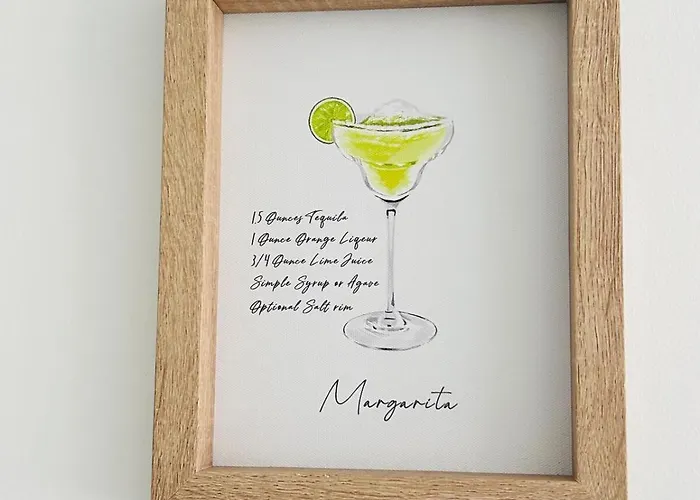 1.5 Ounces Tequila
1 Ounce Orange Liqeur
3/4 Ounce Lime Juice
Simple Syrup or Agave
Optional Salt rim
Margarita